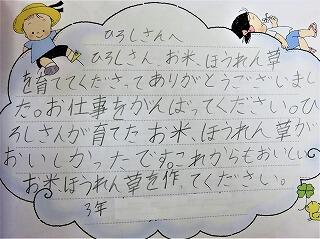 ひろしさんへ
ひろしさん、お米、ほうれん草
を育ててくださってありがとうございまし
た。お仕事をがんばってください。ひ
ろしさんが育てたお米、ほうれん草が
おいしかったです。これからもおいしい
お米ほうれん草を作てください。
3年